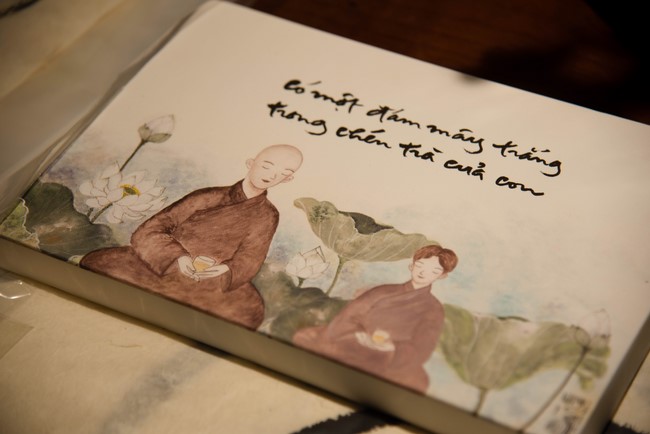 có một đám mây trắng
trong chén trà của con